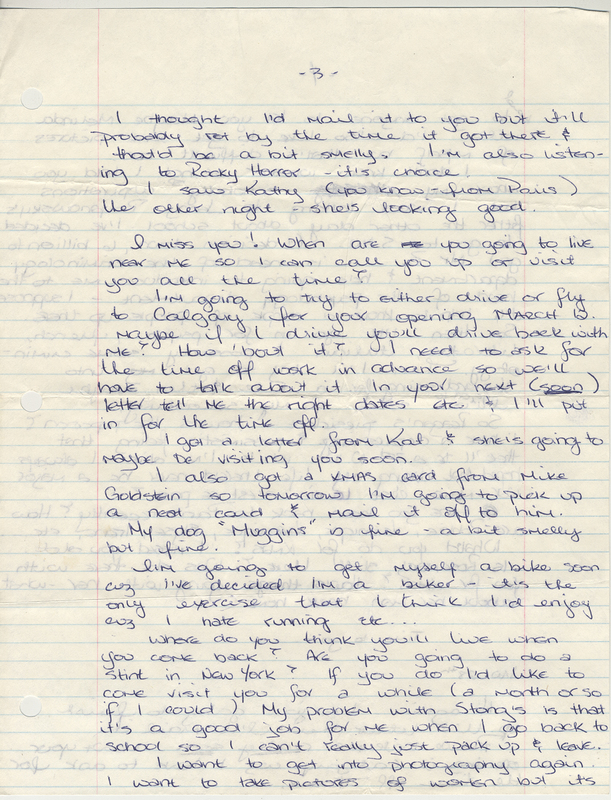 - 3 -
I thought I'd mail it to you but it'll
probably rot by the time it got there &
that'd be a bit smelly. I'm also listen-
ing to Rocky Horror - it's choice!
I saw Kathy (you know - from Paris)
the other night - she's looking good.
I miss you! When are you going to live
near me so I can call you up or visit
you all the time?
I'm going to try to either drive or fly
to Calgary for your opening March 13.
Maybe if I drive you'll drive back with
me? How 'bout it? I need to ask for
the time off work in advance so we'll
have to talk about it. In your next (soon)
letter tell me the right dates etc & I'll put
in for the time off.
I got a letter from Kal & she's going to
maybe be visiting you soon.
I also got a XMAS card from Mike
Goldstein so tomorrow I'm going to pick up
a neat card & mail it off to him.
My dog "Muggins" is fine - a bit smelly
but fine.
I'm going to get myself a bike soon
cuz I've decided I'm a biker - it's the
only exercise that I think I'd enjoy
cuz I hate running etc....
Where do you think you'll live when
you come back? Are you going to do a
stint in New York? If you do I'd like to
come visit you for a while (a month or so
if I could). My problem with Stong's is that
it's a good job for me when I go back to
school so I can't really just pack up & leave.
I want to get into photography again.
I want to take pictures of women but it's